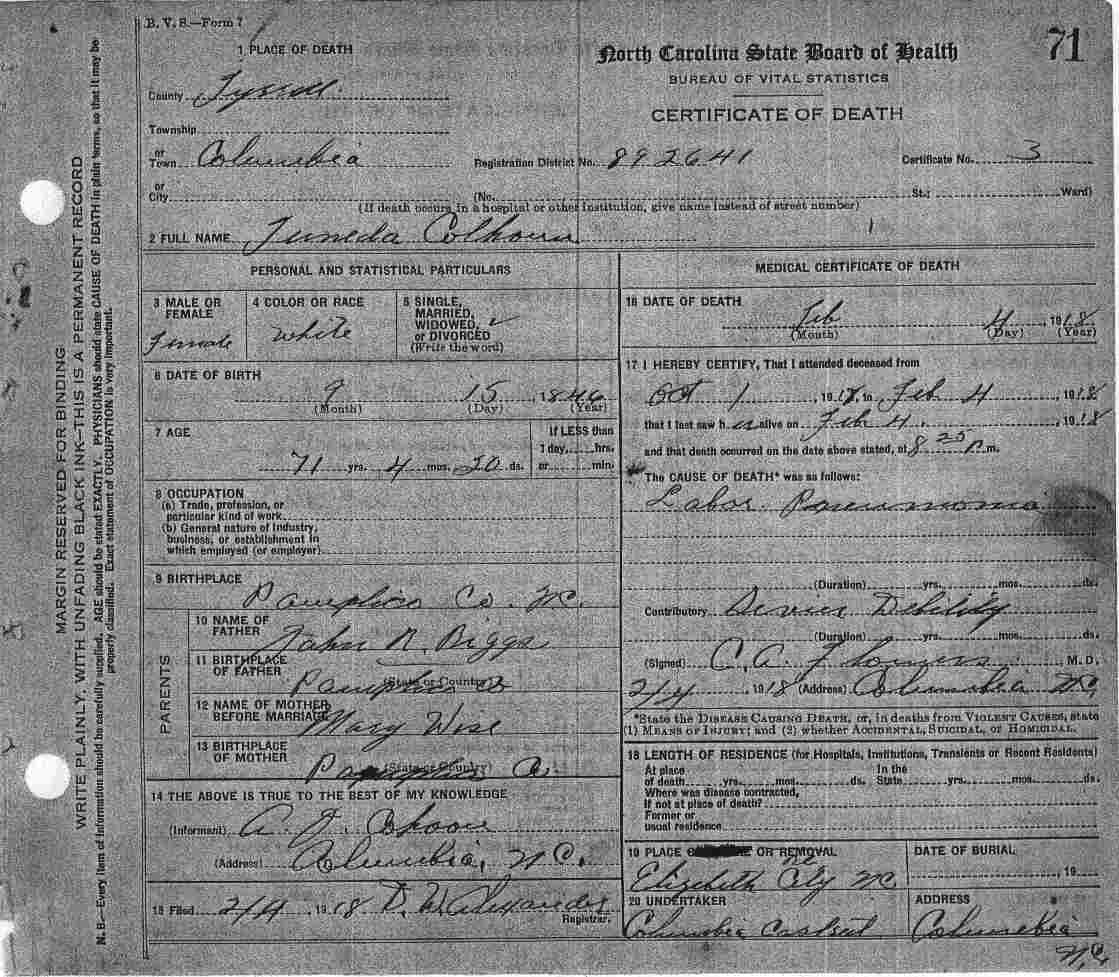 B. V. S.—Form 7
71
North Carolina State Board of Health
BUREAU OF VITAL STATISTICS
CERTIFICATE OF DEATH
1 PLACE OF DEATH
County Tyrrell
Township
or Town Columbia Registration District No. 892641 Certificate No. 3
or City (No. St.; Ward)
(If death occurs in a hospital or other institution, give name instead of street number)
2 FULL NAME Juneda Colhoun
PERSONAL AND STATISTICAL PARTICULARS
3 MALE OR FEMALE
Female
4 COLOR OR RACE
white
5 SINGLE, MARRIED, WIDOWED, or DIVORCED
(Write the word)
6 DATE OF BIRTH
9 15, 1846
(Month) (Day) (Year)
7 AGE
If LESS than
1 day, hrs.
71 yrs. 4 mos. 20 ds. or min.
8 OCCUPATION
(a) Trade, profession, or
particular kind of work
(b) General nature of industry,
business, or establishment in
which employed (or employer)
9 BIRTHPLACE
Pamplico Co. N.C.
PARENTS
10 NAME OF FATHER
John N. Biggs
11 BIRTHPLACE OF FATHER
(State or Country)
Pamplico Co
12 NAME OF MOTHER BEFORE MARRIAGE
Mary Wise
13 BIRTHPLACE OF MOTHER
(State or Country)
Pamplico Co.
14 THE ABOVE IS TRUE TO THE BEST OF MY KNOWLEDGE
(Informant) A. J. Cohoon
(Address) Columbia, N.C.
15 Filed 2/4 1918 D. W. Alexander
Registrar.
MEDICAL CERTIFICATE OF DEATH
16 DATE OF DEATH
Feb 4, 1918
(Month) (Day) (Year)
17 I HEREBY CERTIFY, That I attended deceased from
Oct 1, 1917, to Feb 4, 1918
that I last saw her alive on Feb 4, 1918
and that death occurred on the date above stated, at 8 25 P m.
The CAUSE OF DEATH* was as follows:
Labor Pneumonia
(Duration) yrs. mos. ds.
Contributory Debility
(Duration) yrs. mos. ds.
(Signed) C. A. Flowers, M. D.
2/4 1918 (Address) Columbia N.C.
*State the DISEASE CAUSING DEATH, or, in deaths from VIOLENT CAUSES, state
(1) MEANS OF INJURY; and (2) whether ACCIDENTAL, SUICIDAL, or HOMICIDAL.
18 LENGTH OF RESIDENCE (for Hospitals, Institutions, Transients or Recent Residents)
At place of death yrs. mos. ds. In the State yrs. mos. ds.
Where was disease contracted,
If not at place of death?
Former or
usual residence
19 PLACE OR REMOVAL
Elizabeth City N.C.
DATE OF BURIAL
, 19
20 UNDERTAKER
Columbia
ADDRESS
Columbia
N.C.
MARGIN RESERVED FOR BINDING
WRITE PLAINLY, WITH UNFADING BLACK INK—THIS IS A PERMANENT RECORD
N. B.—Every item of information should be carefully supplied. AGE should be stated EXACTLY. PHYSICIANS should state CAUSE OF DEATH in plain terms, so that it may be
properly classified. Exact statement of OCCUPATION is very important.